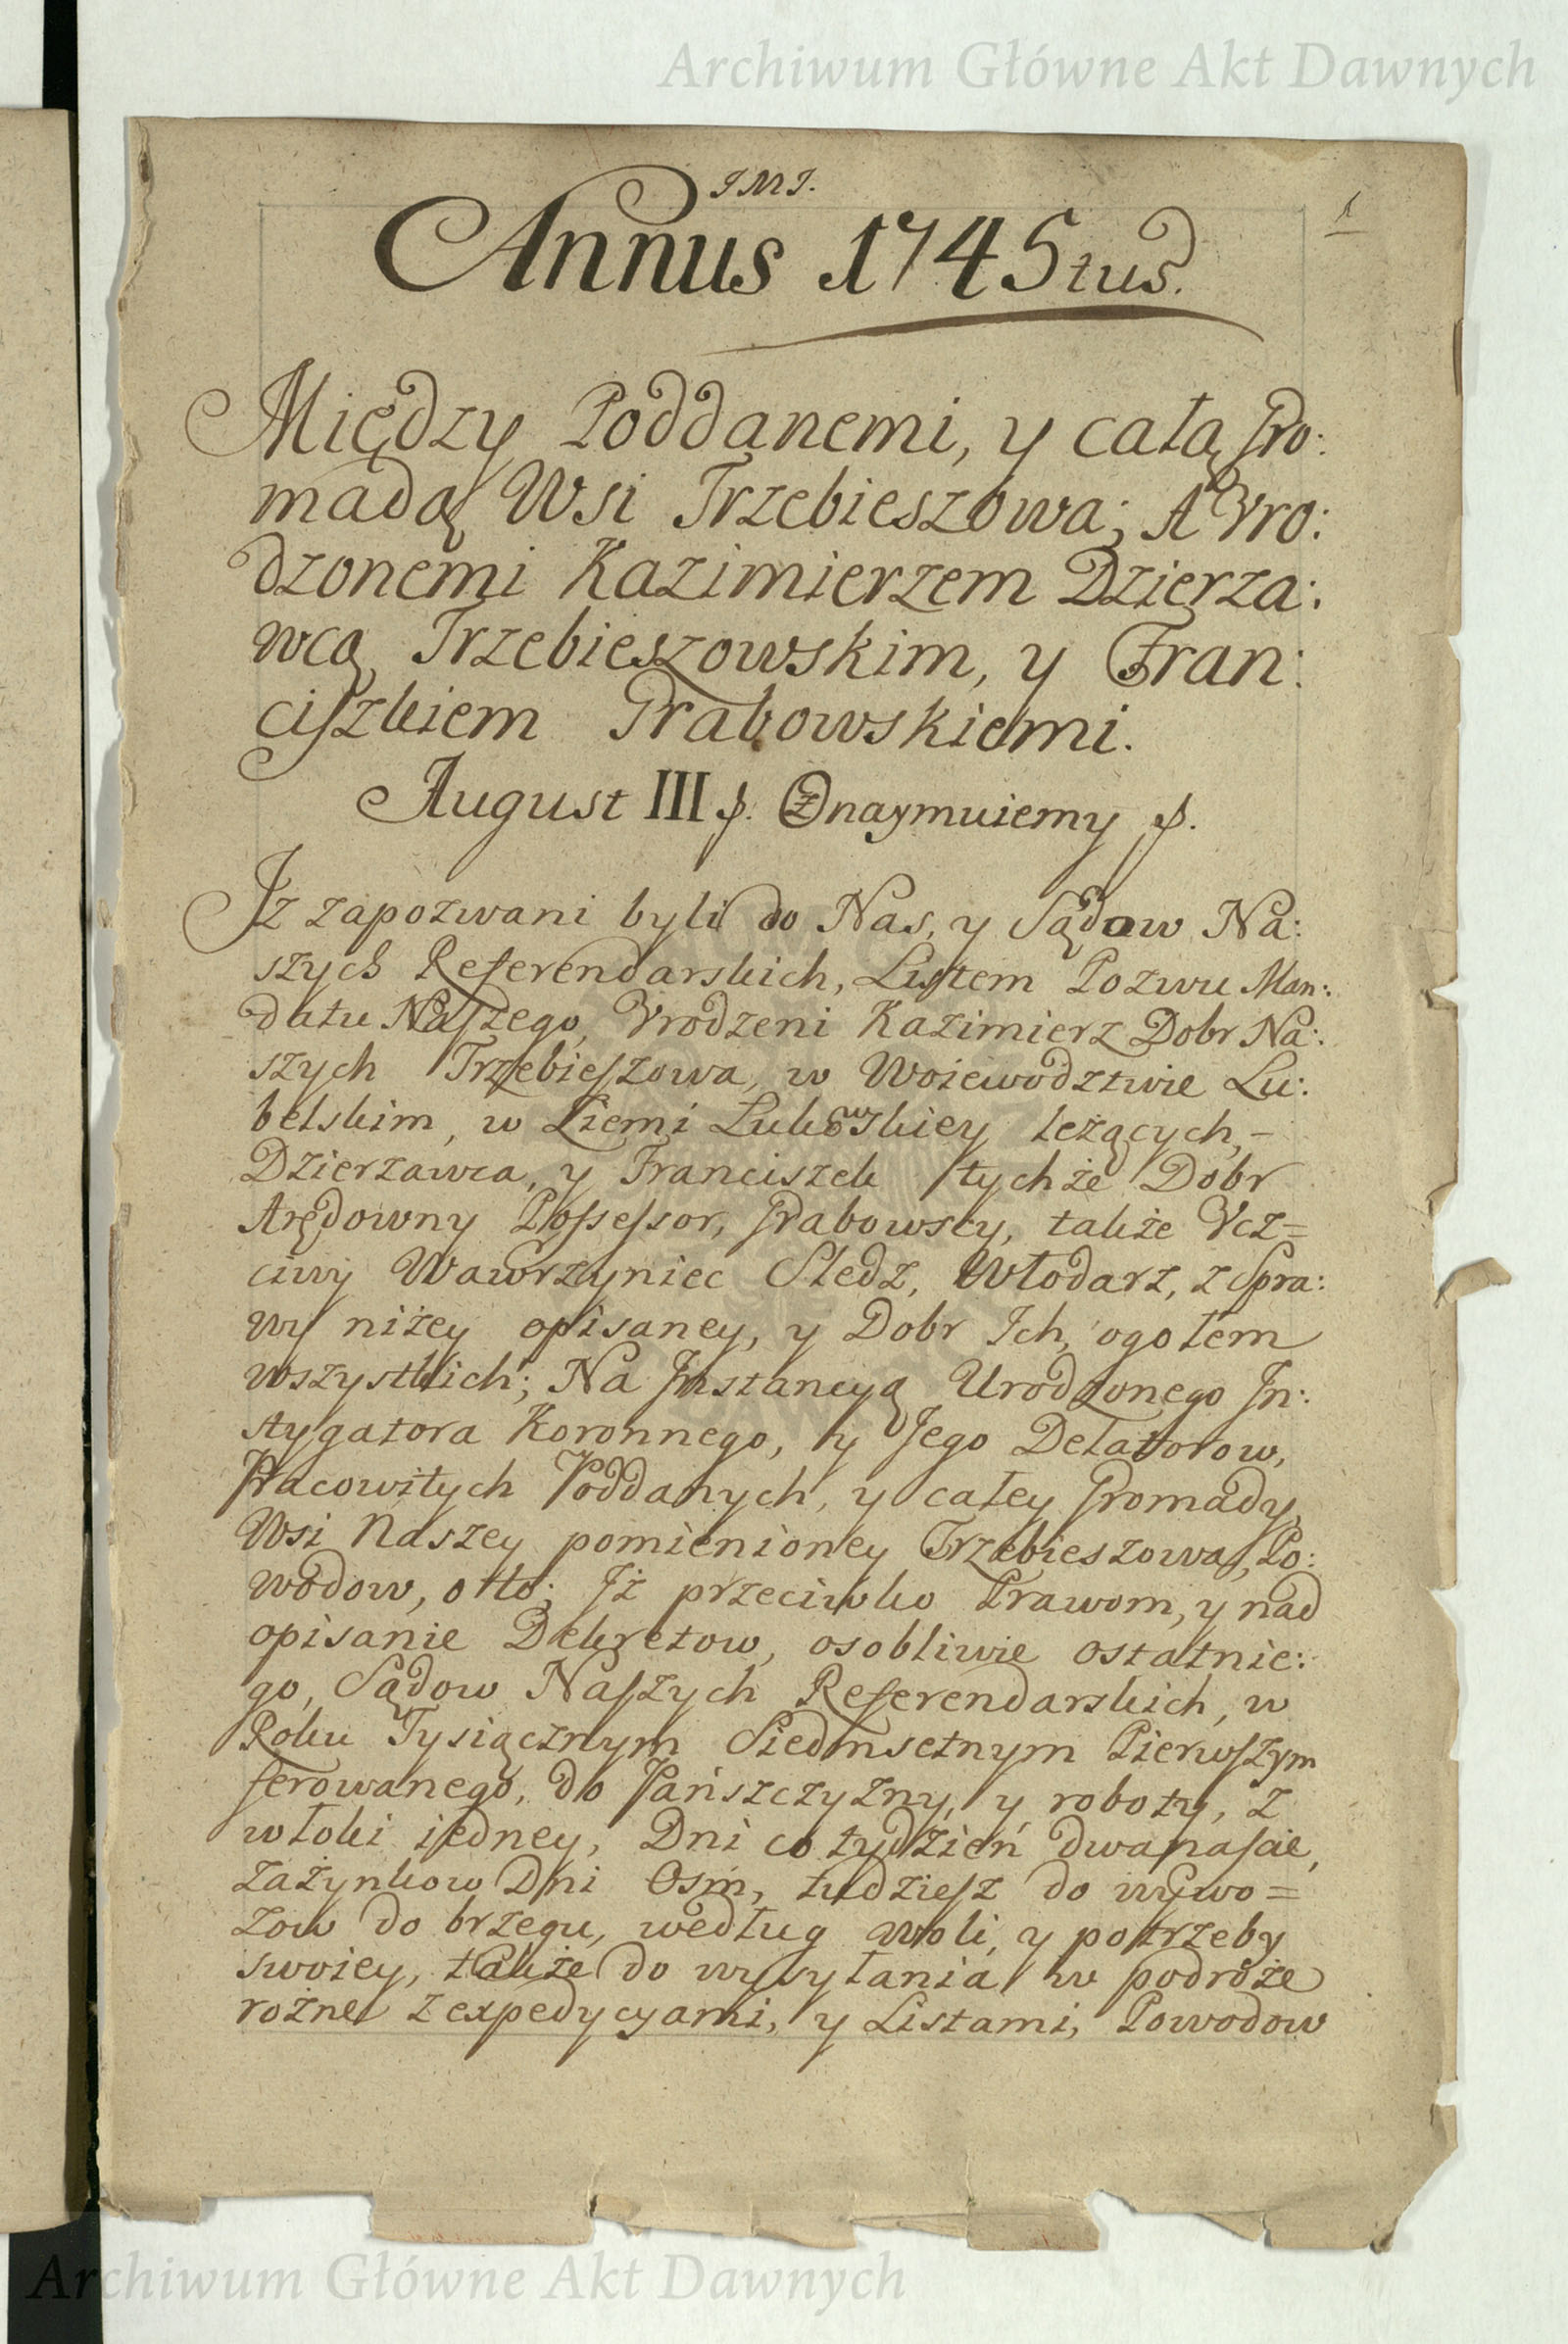 Archiwum Główne Akt Dawnych
JMJ.
1
Annus 1745tus.
Między Poddanemi, y całą Gro:
madą Wsi Trzebieszowa; A Vro:
dzonemi Kazimierzem Dzierza:
wcą Trzebieszowskim, y Fran:
ciszkiem Grabowskiemi.
August III Znaymuiemy
Jz zapozwani byli do Nas, y Sądow Na:
szych Referendarskich, Listem Pozwu Man:
datu Naszego, Vrodzeni Kazimierz Dobr Na:
szych Trzebieszowa, w Woiewodztwie Lu:
belskim, w Ziemi Lukowskiey leżących,-
Dzierzawca, y Franciszek tychże Dobr
Arędowny Possessor, Grabowscy, także Vcz=
ciwy Wawrzyniec Sledz, Włodarz, z Spra:
wy niżey opisaney, y Dobr Ich, ogołem
wszystkich; Na Jnstancyą Urodzonego Jn:
stygatora Koronnego, y Jego Delatorow,
Pracowitych Poddanych, y całey Gromady,
Wsi Naszey pomienioney Trzebieszowa, Po:
wodow, o to; Jż przeciwko Prawom, y nad
opisanie Dekretow, osobliwie ostatnie:
go, Sądow Naszych Referendarskich, w
Roku Tysiącznym Siedmsetnym Pierwszym
ferowanego, do Pańszczyzny, y roboty, z
włoki iedney, Dni co tydzień dwanascie,
Zażynkow Dni Osm, tudziesz do wywo=
zow do brzegu, według woli, y potrzeby
swoiey, także do wysyłania w podroże
rożne z expedycyami, y Listami, Powodow
Archiwum Główne Akt Dawnych